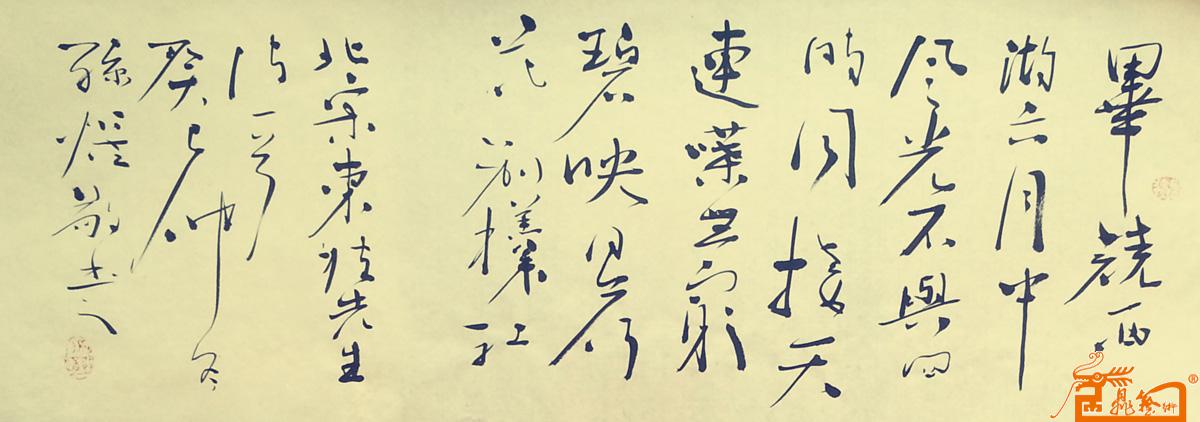 畢競西
湖六月中
風光不與四
時同接天
連葉無窮
碧映日荷
花別樣紅
北宋東坡先生
詩一首
癸巳仲冬
孫 敬書之